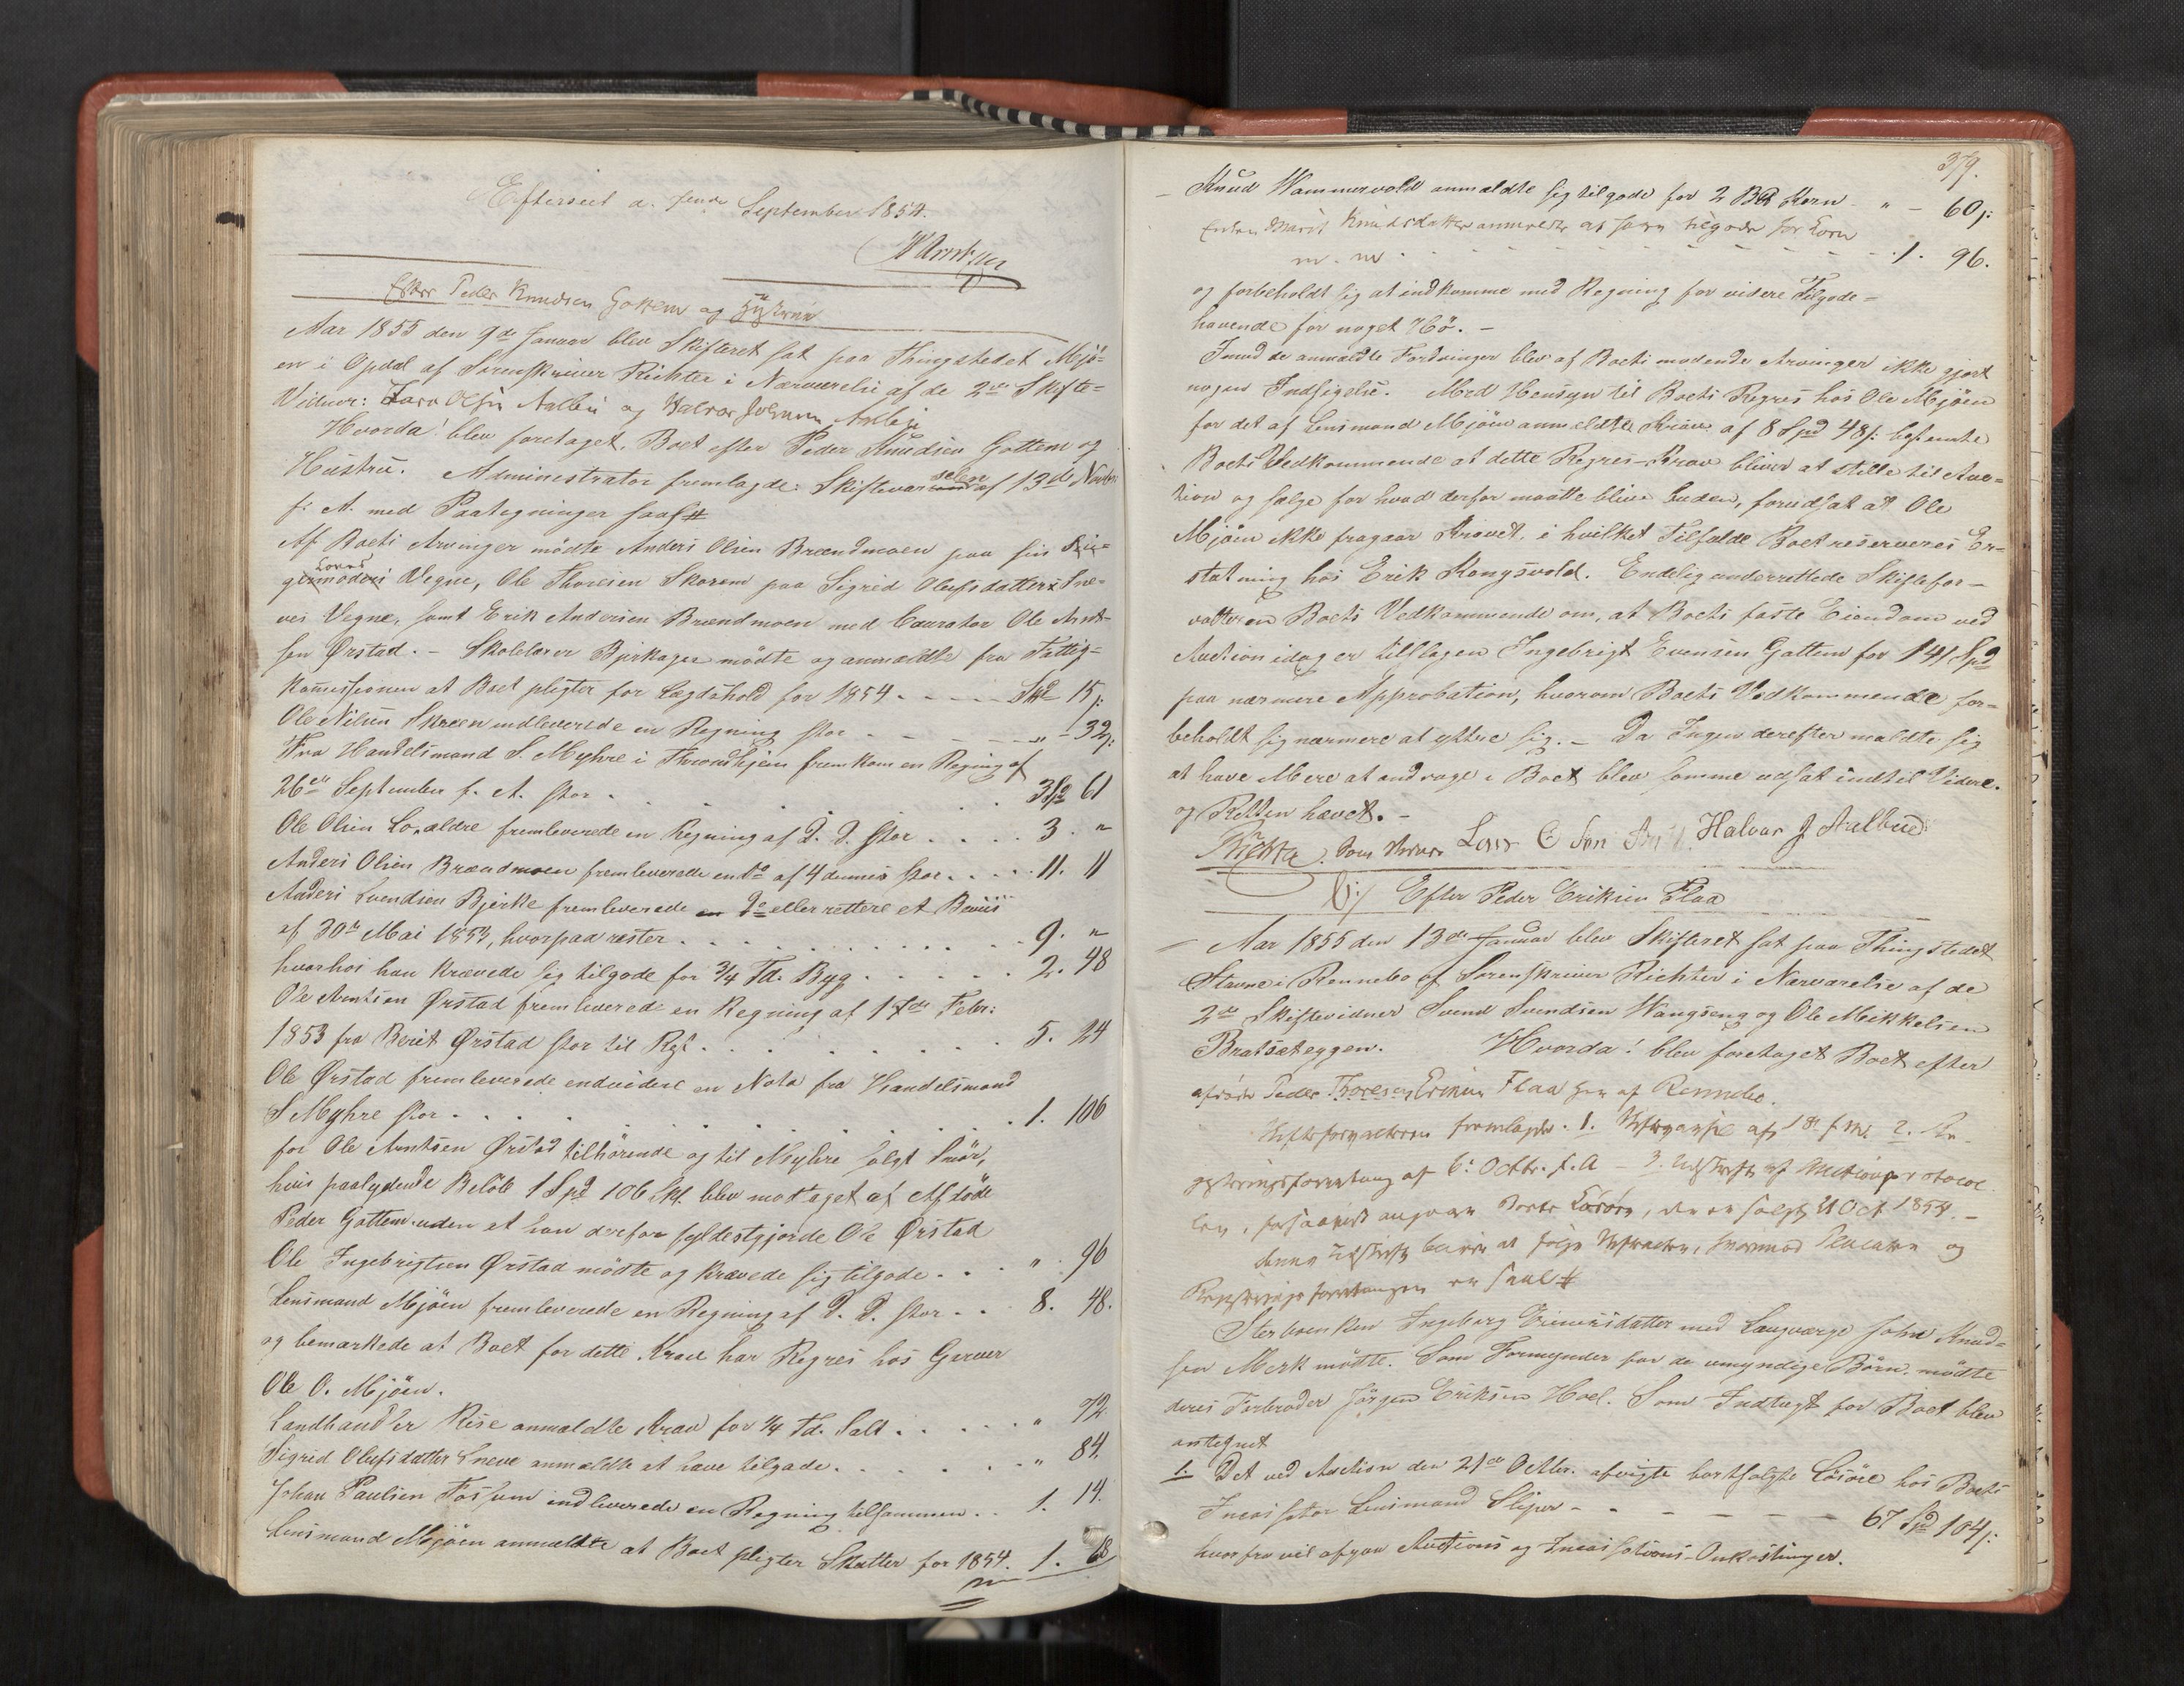 Efterseet d. September 1854.
Efter Peder Knudsen Gottem og Hustrue
Aar 1855 den 9de Januar blev Skifteret sat paa Thingstedet Mjö-
en i Opdal af Sorenskriver Richter i Nærværelse af de 2de Skifte-
Vidner: Lars Olsen Aalbu og Halvor Johnsen Aalbu
Hvorda! blev foretaget Boet efter Peder Knudsen Gottem og
Hustru. Administrator fremlagde: Skiftevarselen af 13de Novbr:
f. A. med Paategninger saal#
Af Boets Arvinger mödte Anders Olsen Brændmoen paa sin
Vegne, Ole Thoresen Skorem paa Sigrid Olufsdatters Sne-
ves Vegne, samt Erik Andersen Brændmoen med Courator Ole Arnt-
sen Örstad. - Skolelærer Bjerkager mödte og anmældte fra Fattig-
kommissionen at Boet pligter for Lægdshold for 1854 - - - - Skl 15 s:
Ole Nilsen Skreen indleverede en Regning stor - - - - " - 32 s:
Fra Handelsmand S. Myhre i Throndhjem fremkom en Regning af
26de September f. A. stor . . . . . . 3 Spd 61
Ole Olsen Lo, ældre fremleverede en Regning af D. D. stor . . . . 3. "
Anders Olsen Brændmoen fremleverede en Do af 4 dennes stor . . . . 11. 11
Anders Svendsen Bjerke fremleverede en Do eller rettere et Beviis
af 30te Mai 1853, hvorpaa rester . . . . . . . . . . . 9. "
hvorhos han krævede sig tilgode for 3/4 Td. Byg . . . . . 2. 48
Ole Arntsen Örstad fremleverede en Regning af 17de Febr:
1853 fra Berit Örstad stor til Rest . . . . . . . . 5. 24
Ole Örstad fremleverede endvidere en Nota fra Handelsmand
S Myhre stor . . . . . . . . . . . 1. 106
for Ole Arntsen Örstad tilhörende og til Myhre solgt Smör,
hvis paalydende Belöb 1 Spd 106 Skl. blev modtaget af Afdöde
Peder Gottem uden at han derfor fyldestgjorde Ole Örstad
Ole Ingebrigtsen Örstad mödte og krævede sig tilgode . . . " 96
Lensmand Mjöen fremleverede en Regning af D. D. stor - . . 8. 48.
og bemærkede at Boet for dette Krav har Regres hos Garver
Ole O. Mjöen.
Landhandler Rise anmældte Krav for 1/4 Td. Salt . . . . . " 72
Sigrid Olufsdatter Sneve anmældte at have tilgode . . . . . " 84.
Johan Paulsen Fossum indleverede en Regning tilsammen . . 1. 14.
Lensmand Mjöen anmældte at Boet pligter Skatter for 1854. 1. 68
379.
- Knud Hammervold anmældte sig tilgode for 2 Korn - " - 60 s:
Enken Marit Knudsdatter anmældte at have tilgode for Korn
m. m. - - - - - - - 1. 96.
og forbeholdt sig at indkomme med Regning for videre Tilgode-
havende for noget Hö. -
Imod de anmældte Fordringer blev af Boets mödende Arvinger ikke gjort
nogen Indsigelse. Med Hensyn til Boets Regres hos Ole Mjöen
for det af Lensmand Mjöen anmeldte Krav af 8 Spd 48 s: bestemte
Boets Vedkommende at dette Regres-Krav bliver at stille til Auc-
tion og sælge for hvad derfor maatte blive buden, forudsat at Ole
Mjöen ikke fragaar Kravet, i hvilket Tilfælde Boet reserveres Er-
statning hos Erik Kongsvold. Endelig underrettede Skiftefor-
valteren Boets Vedkommende om, at Boets faste Eiendom ved
Auction idag er tilslagen Ingebrigt Evensen Gottem for 141 Spd
paa nærmere Approbation, hvorom Boets Vedkommende for-
beholdt sig nærmere at yttre sig. - Da Ingen derefter meldte sig
at have Mere at andrage i Boet blev samme udsat indtil Videre.
og Retten hævet. -
Richter. Som Vidner Lars O Sen Halvor J Aalbue
6:/ Efter Peder Eriksen Flaa
- Aar 1855 den 13de Januar blev Skifteret sat paa Thingstedet
Stavne i Rennebo af Sorenskriver Richter i Nærværelse af de
2de Skiftevidner Svend Svendsen Vangseng og Ole Mikkelsen
Bratsæteggen. Hvorda! blev foretaget Boet efter
afdöde Peder Eriksen Flaa af Rennebo.
Skifteforvalteren fremlagde. 1. af 18 f. M. 2. Re-
gistreringsforretning af 6: Octbr. f. A - 3. Udskrift af Auctionsprotocol
len, forsaavidt angaar Boets Lösöre, der er solgt 21 Oct 1854. -
denne Udskrift bliver at fölge hvormod og
Registreringsforretningen er saal#
Sterboenken Ingeborg Eriksdatter med Laugværge John Knud-
sen Merk mödte. Som Formynder for de umyndige Börn mödte
deres Farbroder Jörgen Eriksen Hoel. Som Indtægt for Boet blev
antegnet
1. Det ved Auction den 21de Octbr. afvigte bortsolgte Lösöre hos Boets
Incassator Lensmand Sliper - - - - - - 67 Spd 104 s:
hvorfra vil afgaa Auctions og Incassations-Omkostninger.